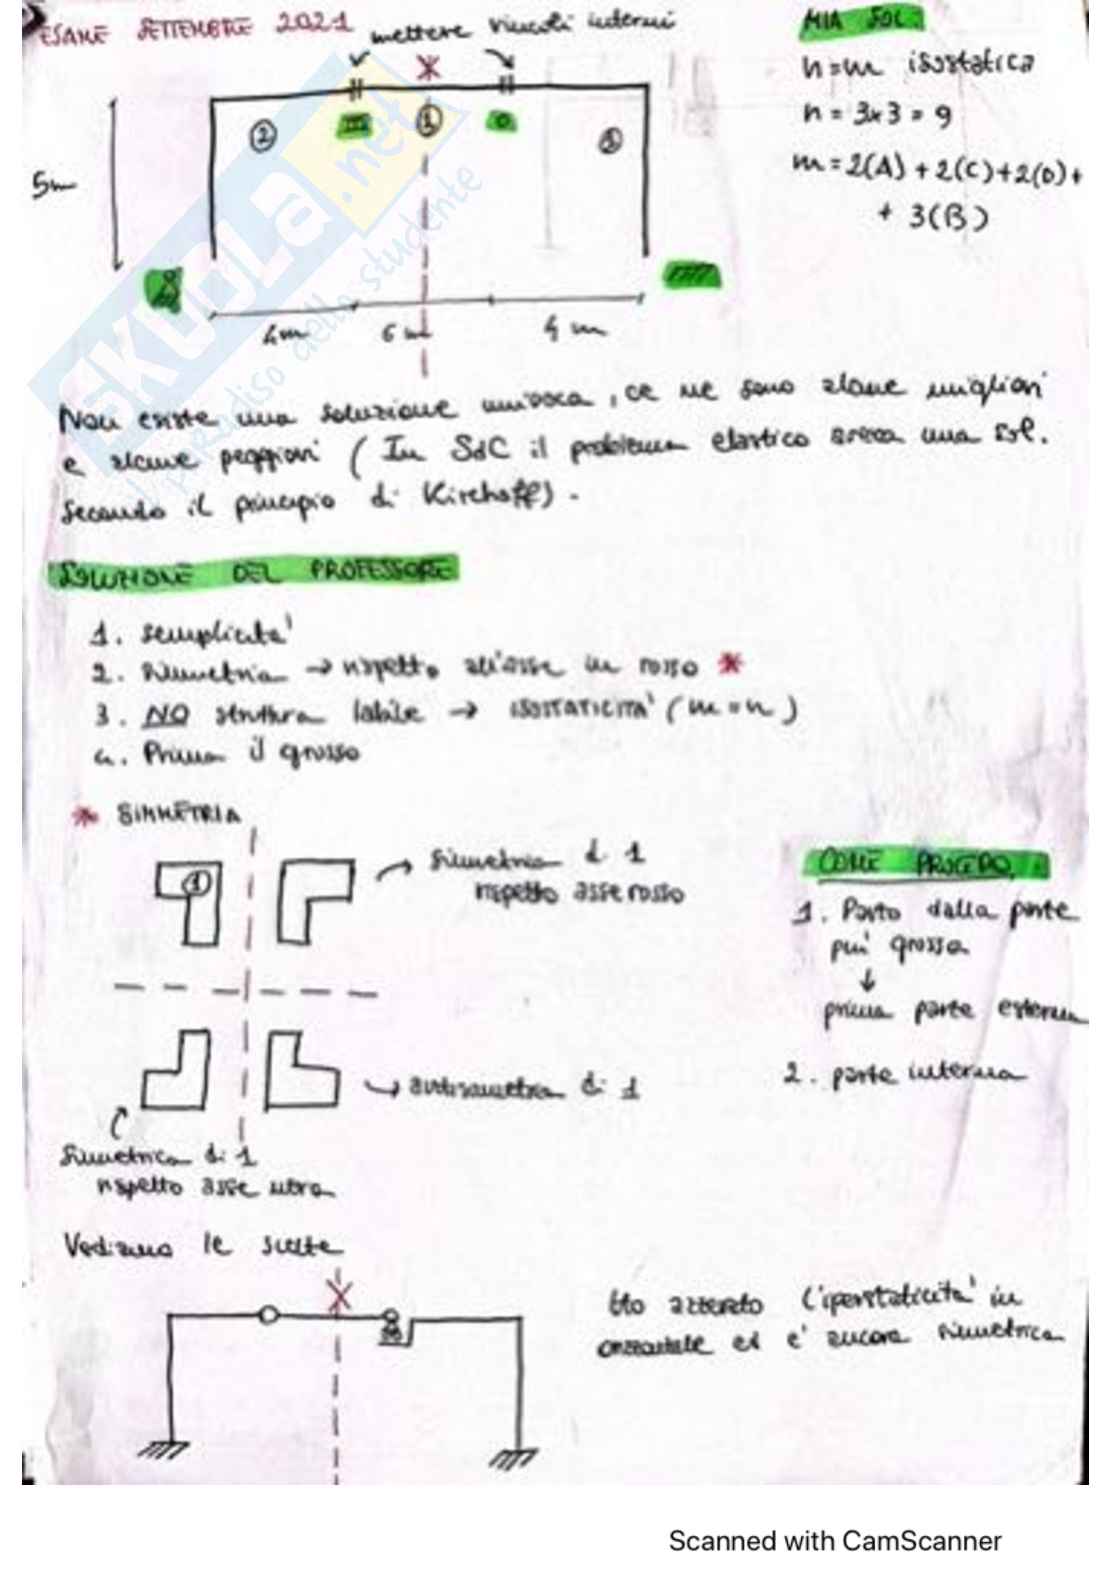 ESAME SETTEMBRE 2021
mettere vincoli interni
MIA SOL:
n=m isostatica
n = 3x3 = 9
m = 2(A) + 2(C)+2(D)+
+ 3(B)
2
1
3
5m
4m
6m
4m
SKUOLA.net
paradiso dello studente
Non esiste una soluzione univoca, ce ne sono alcune migliori
e alcune peggiori (In SdC il problema elastico aveva una sol.
secondo il principio di Kirchoff).
SOLUZIONE DEL PROFESSORE
1. semplicita'
2. Simmetria → rispetto all'asse in rosso *
3. NO struttura labile → ISOSTATICITA' (m=n)
4. Prima il grosso
* SIMMETRIA
1
Simmetria di 1
rispetto asse rosso
antisimmetria di 1
Simmetrica di 1
rispetto asse
COME PROCEDO
1. Parto dalla parte
piu' grossa
↓
prima parte esterna
2. parte interna
Vediamo le scelte
Ho l'iperstaticita' in
orizzontale ed e' ancora simmetrica
Scanned with CamScanner